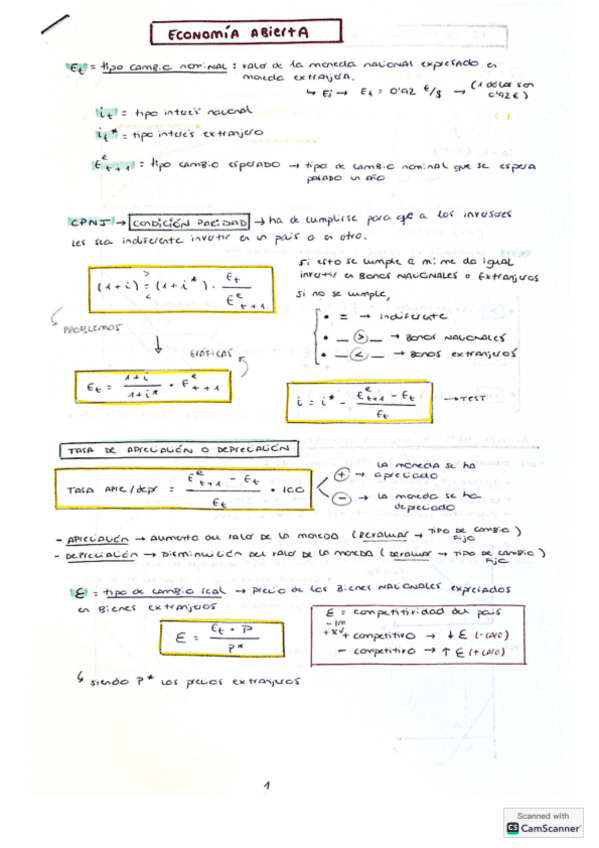 ECONOMÍA ABIERTA
Et = tipo cambio nominal : valor de la moneda nacional expresado en
moneda extranjera.
↳ Ej → Et = 0'92 €/$ → (1 dólar son
0'92€)
it = tipo interés nacional
it* = tipo interés extranjero
E^e t+1 = tipo cambio esperado → tipo de cambio nominal que se espera
pasado un año
CPNJ → CONDICIÓN PARIDAD → ha de cumplirse para que a los inversores
les sea indiferente invertir en un país o en otro.
(1+i) = (1+i*) · Et / E^e t+1
>
<
si esto se cumple a mi me da igual
invertir en BONOS NACIONALES o EXTRANJEROS
si no se cumple,
• = → indiferente
• _ > _ → BONOS NACIONALES
• _ < _ → BONOS EXTRANJEROS
↳ PROBLEMAS
GRÁFICAS
Et = 1+i / 1+i* · E^e t+1
i = i* - E^e t+1 - Et / Et → TEST
TASA DE APRECIACIÓN O DEPRECIACIÓN
TASA APRE/depr = E^e t+1 - Et / Et · 100
+ → LA MONEDA SE HA
apreciado
- → la moneda se ha
depreciado
- APRECIACIÓN → AUMENTO DEL VALOR DE LA MONEDA (Revaluar → TIPO DE CAMBIO FIJO)
- DEPRECIACIÓN → DISMINUCIÓN DEL VALOR DE LA MONEDA (DEVALUAR → TIPO DE CAMBIO FIJO)
Ɛ = tipo de cambio real → precio de los Bienes NACIONALES expresados
en Bienes extranjeros
Ɛ = Et · P / P*
Ɛ = competitividad del país
-IM
+XV + competitivo → ↓ Ɛ (-caro)
- competitivo → ↑ Ɛ (+caro)
↳ siendo P* los precios extranjeros
1
Scanned with
CS CamScanner